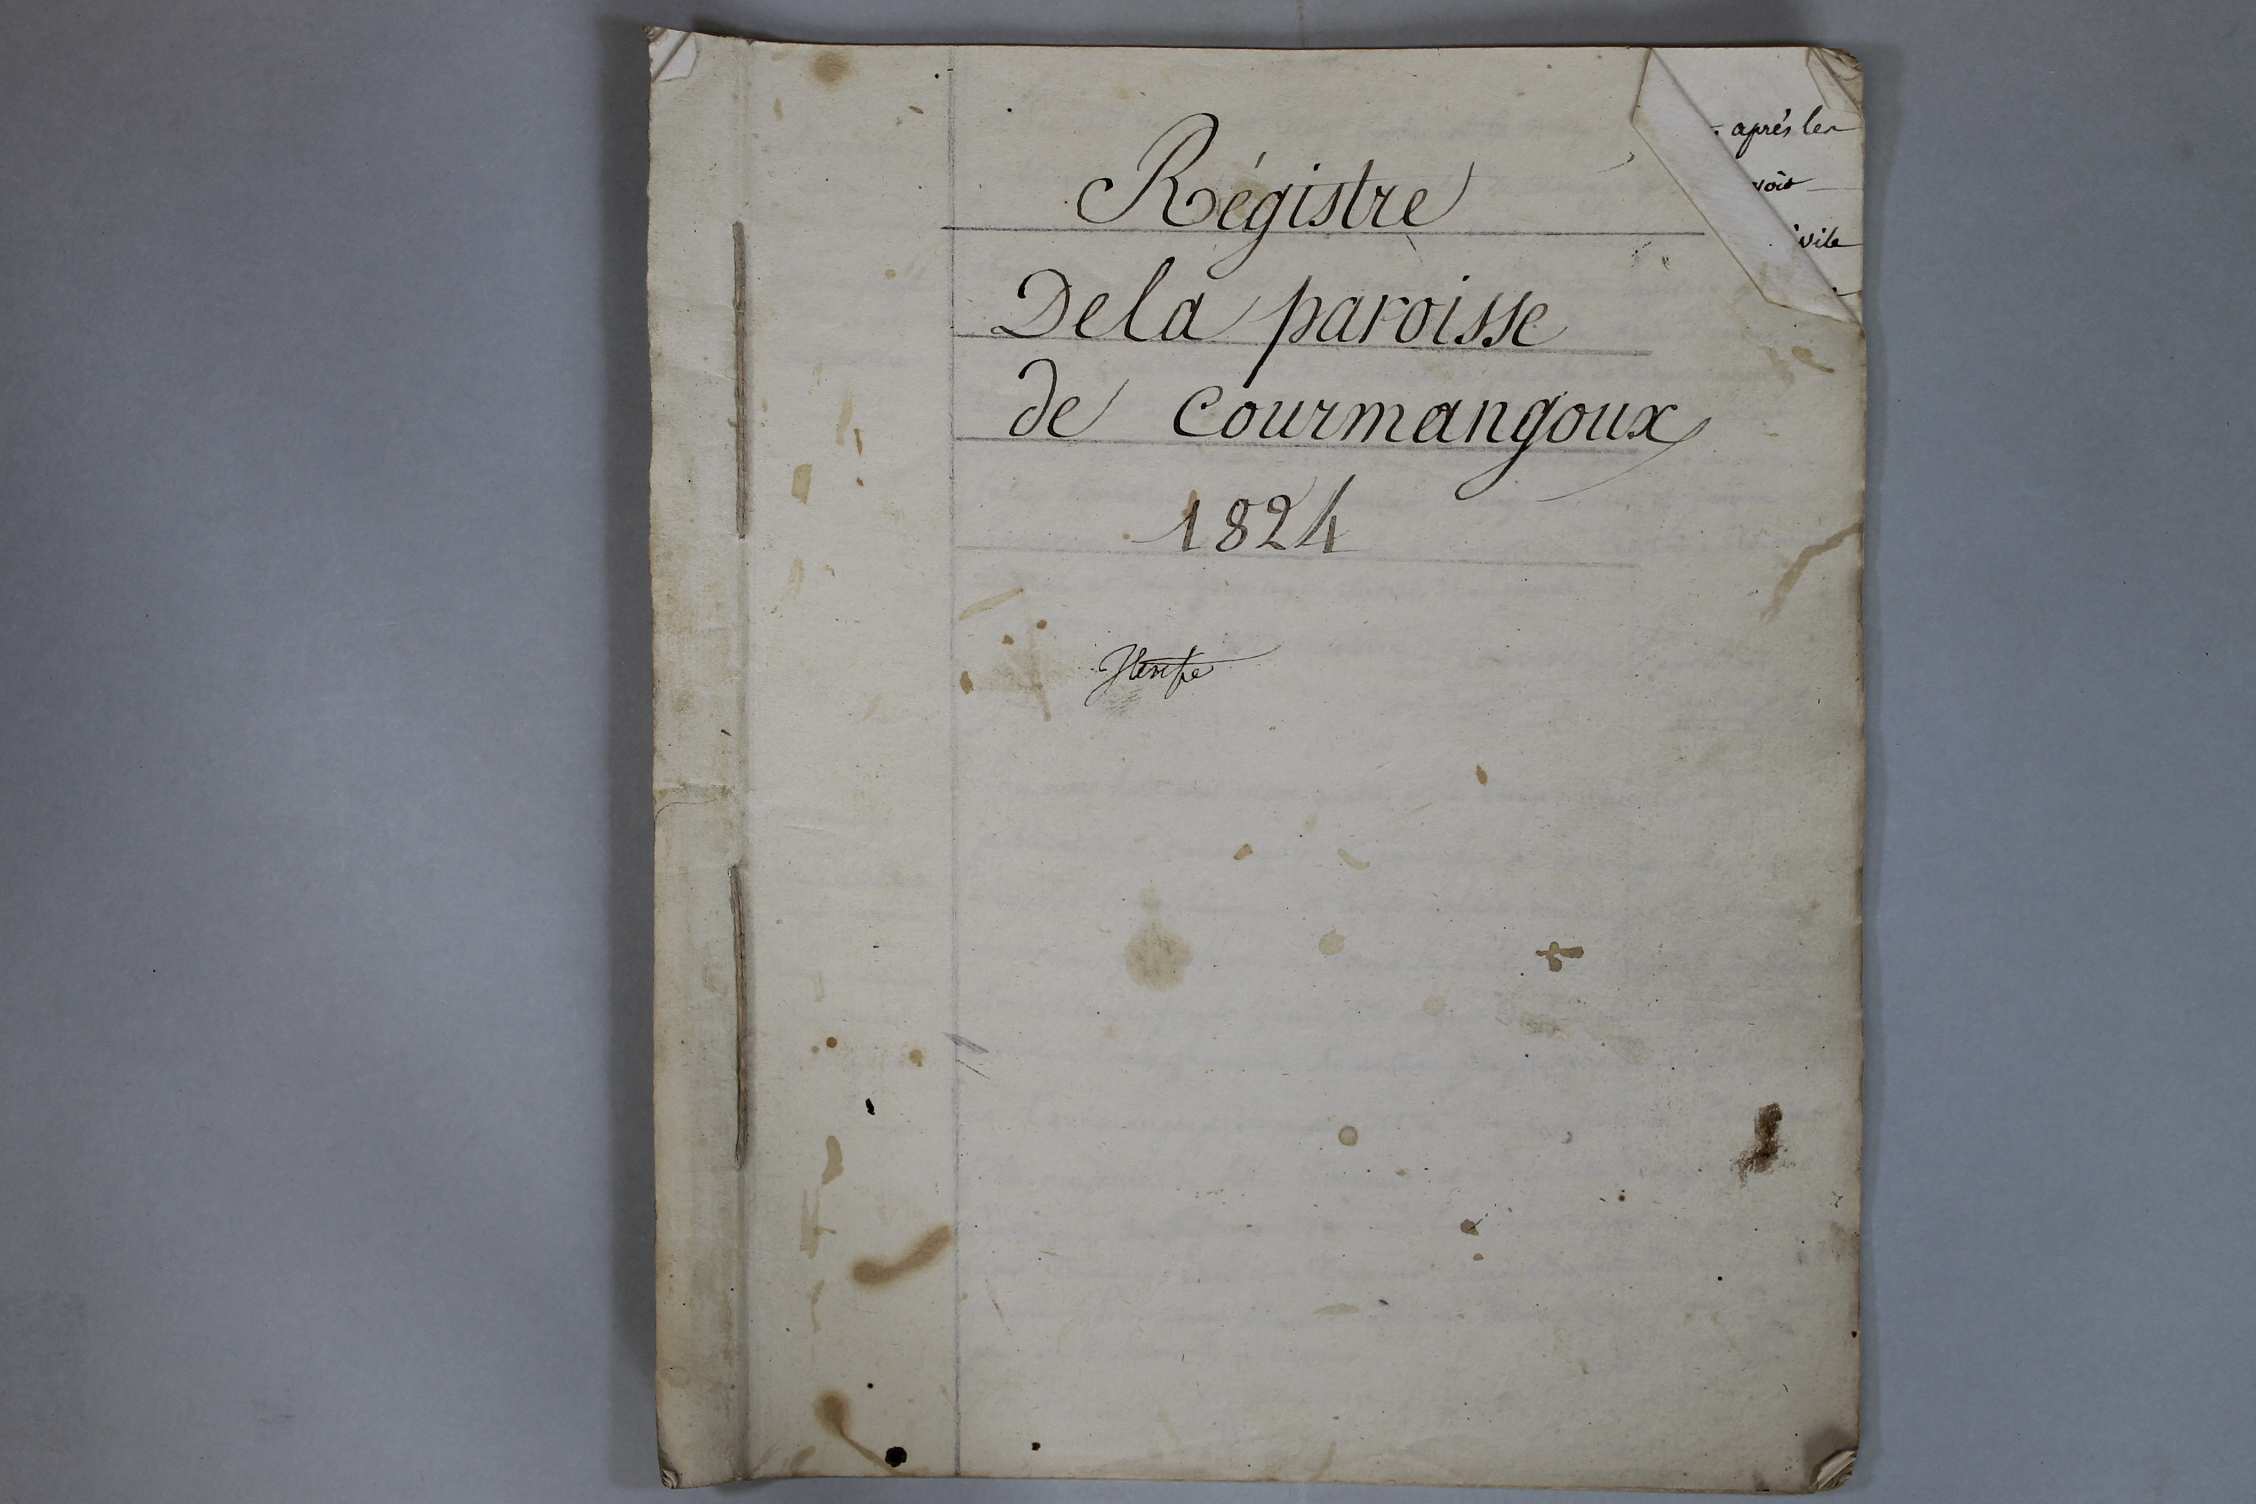 Régistre
De la paroisse
de courmangoux
1824
après les